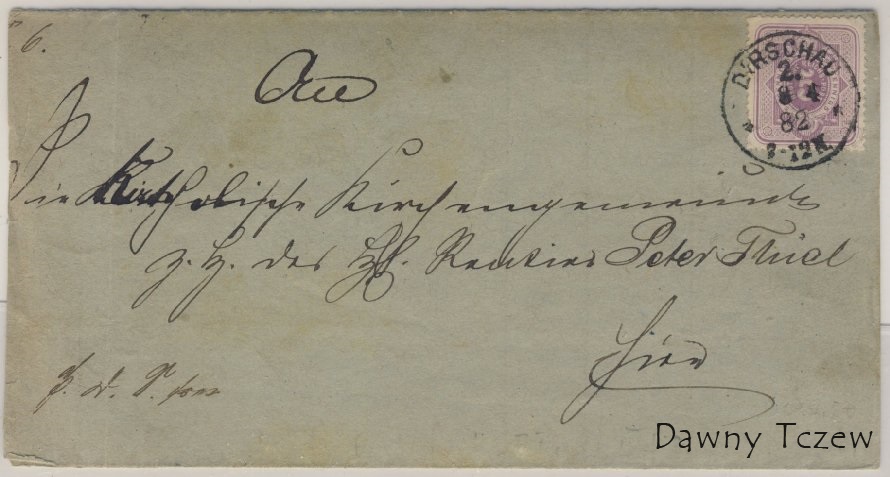 6.
An
Die Katholische Kirchengemeinde
z. H. des Hh. Rentier Peter Thiel
hier
DIRSCHAU
2.
8 4
82
Dawny Tczew